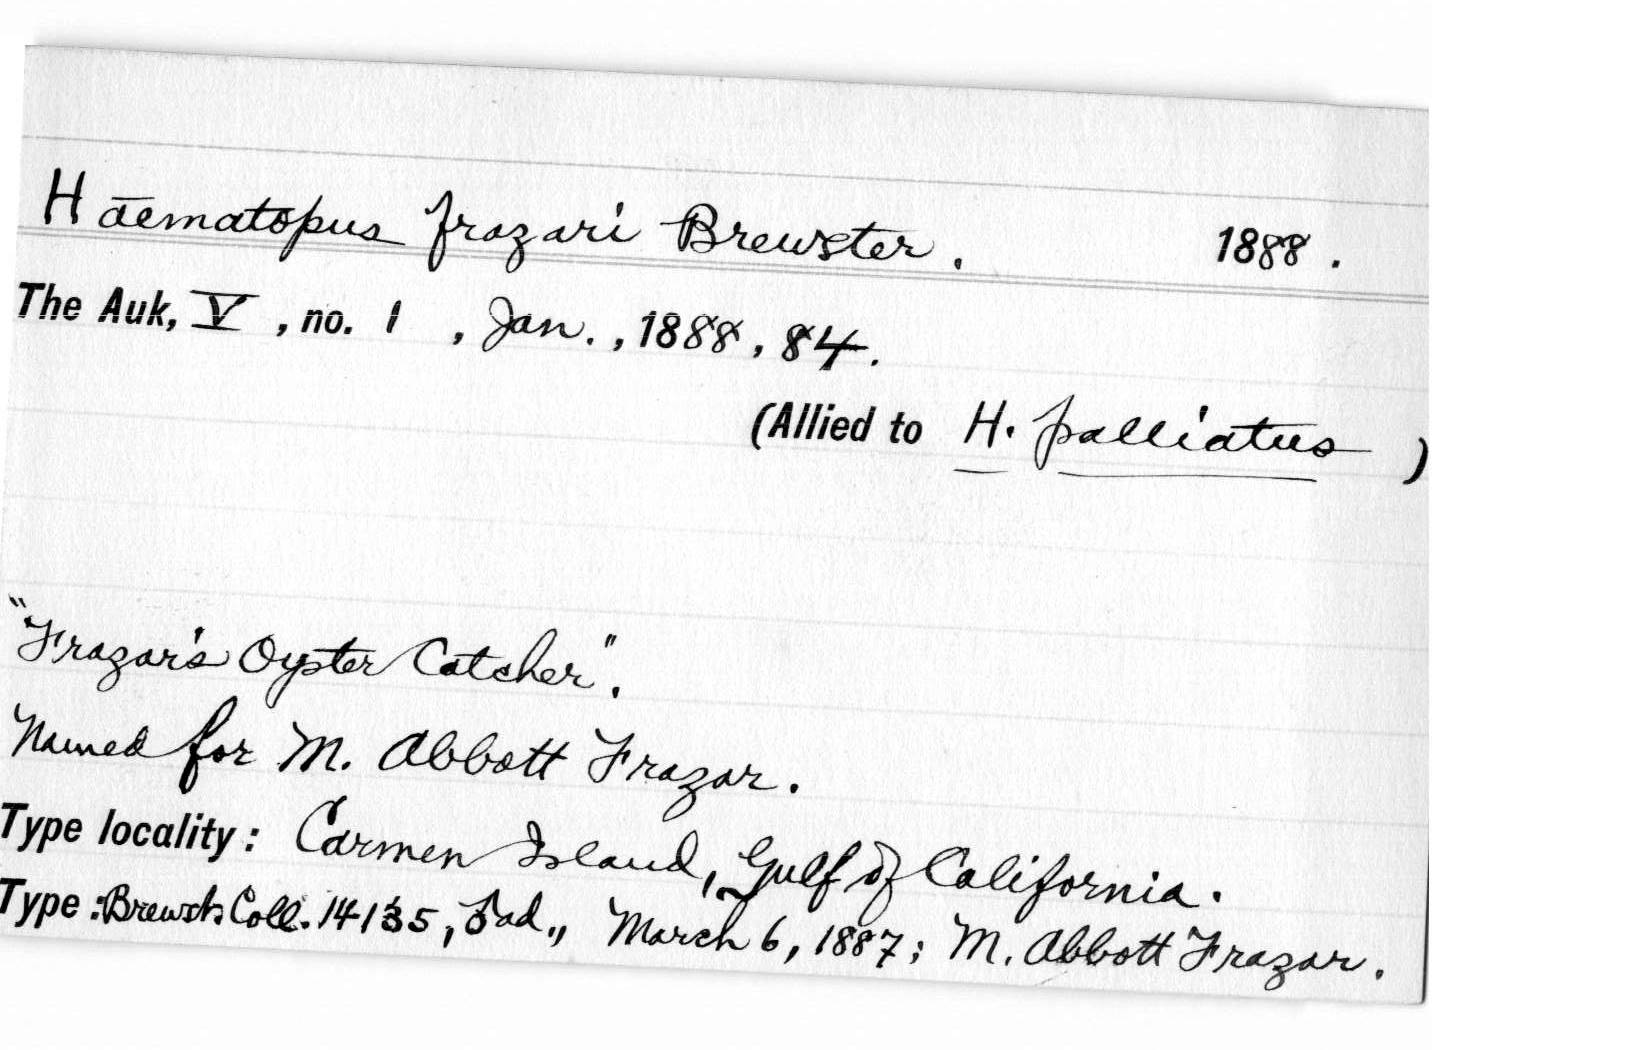 Haematopus frazari Brewster. 1888.
The Auk, V, no. 1, Jan., 1888, 84.
(Allied to H. palliatus)
"Frazar's Oyster Catcher".
Named for M. Abbott Frazar.
Type locality: Carmen Island, Gulf of California.
Type: Brewst. Coll. 14135, ♂ ad., March 6, 1887; M. Abbott Frazar.